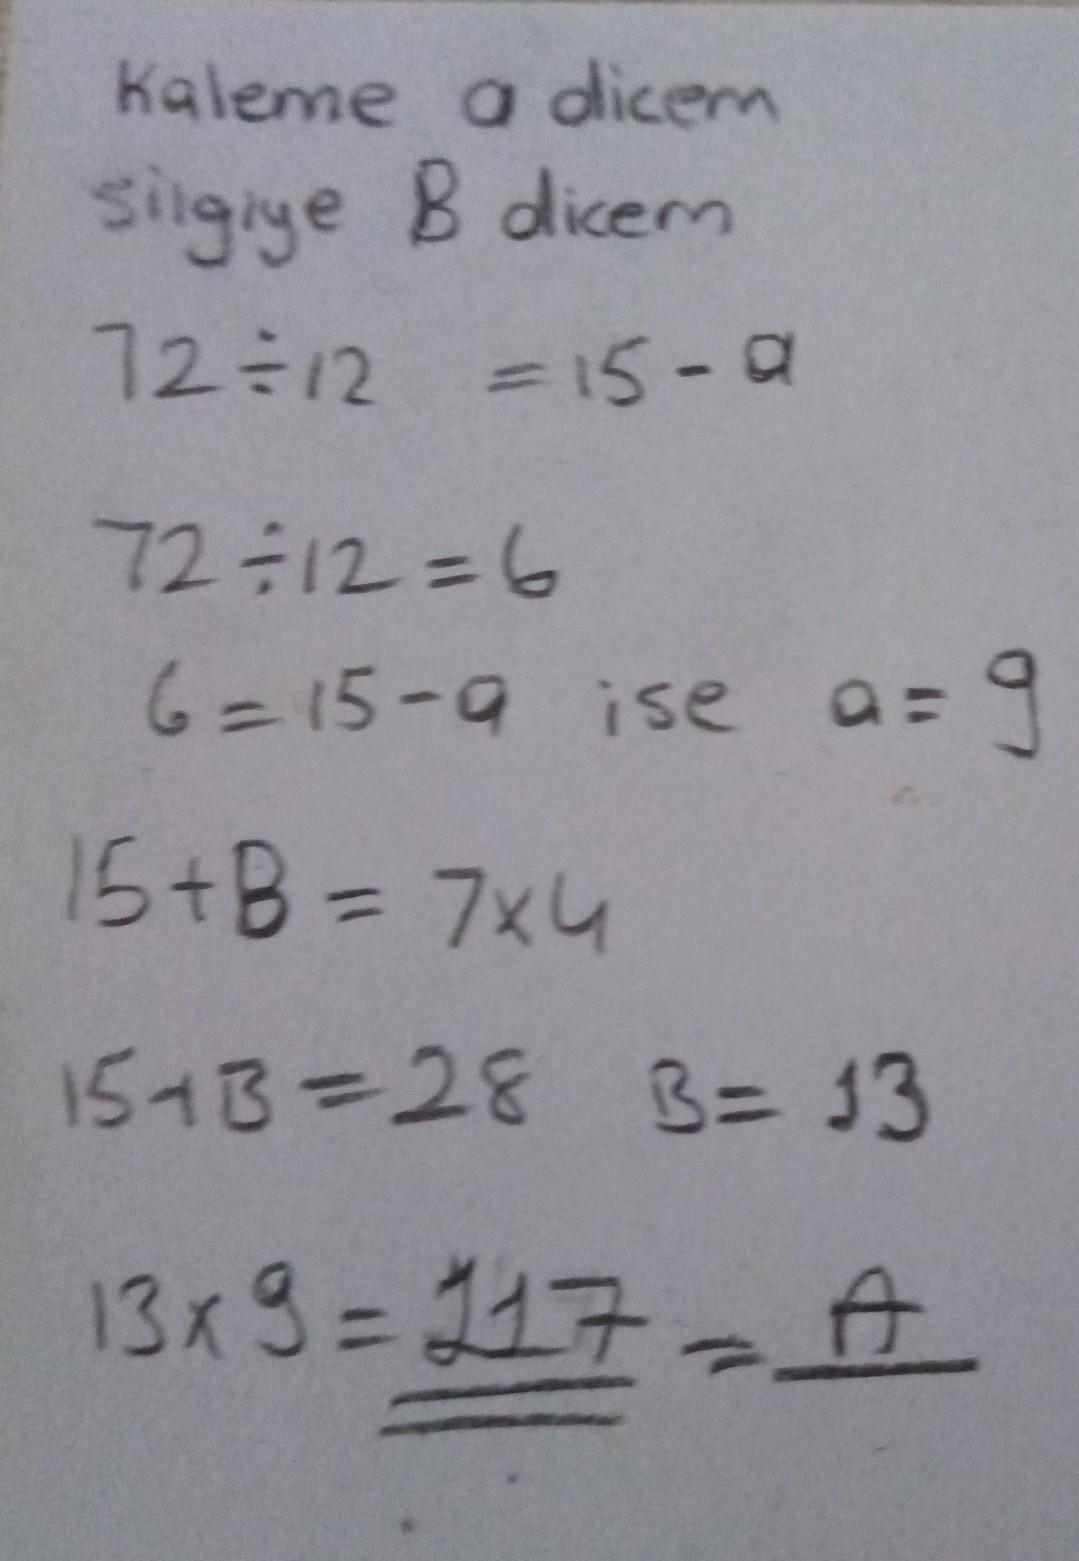 Kaleme a dicem
silgiye B dicem
72÷12 =15-a
72÷12=6
6=15-a ise a=9
15+B=7x4
15+B=28 B=13
13x9=117=A